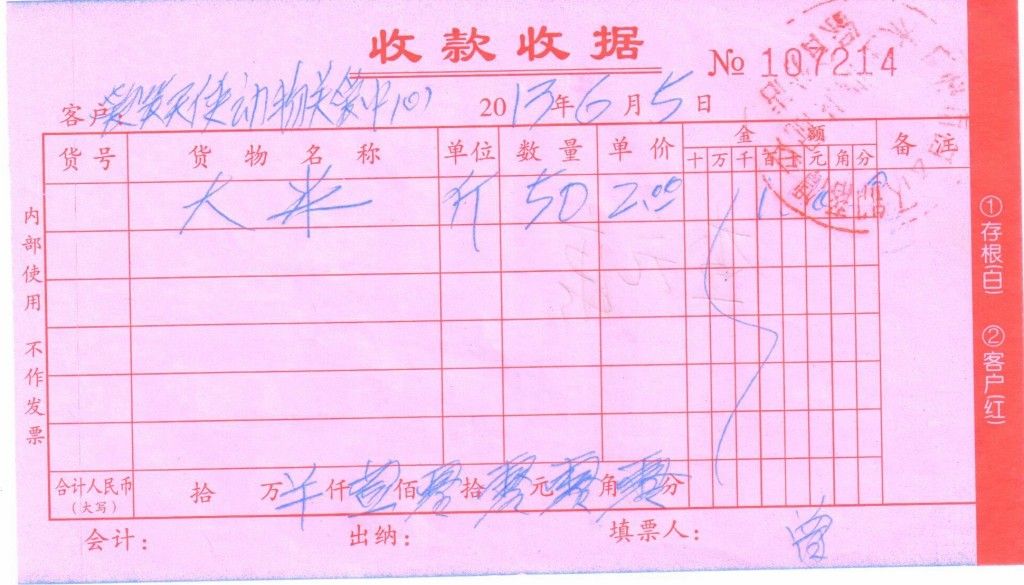 收款收据
№ 107214
客户: 天使动物关爱中心 2013年6月5日
货号 货物名称 单位 数量 单价 金额 备注
十 万 千 百 十 元 角 分
大米 斤 50 2.00
合计人民币（大写） 拾 万 仟 壹 佰 零 拾 零 元 零 角 零 分
会计： 出纳： 填票人： 曾
内部使用 不作发票
①存根(白) ②客户(红)